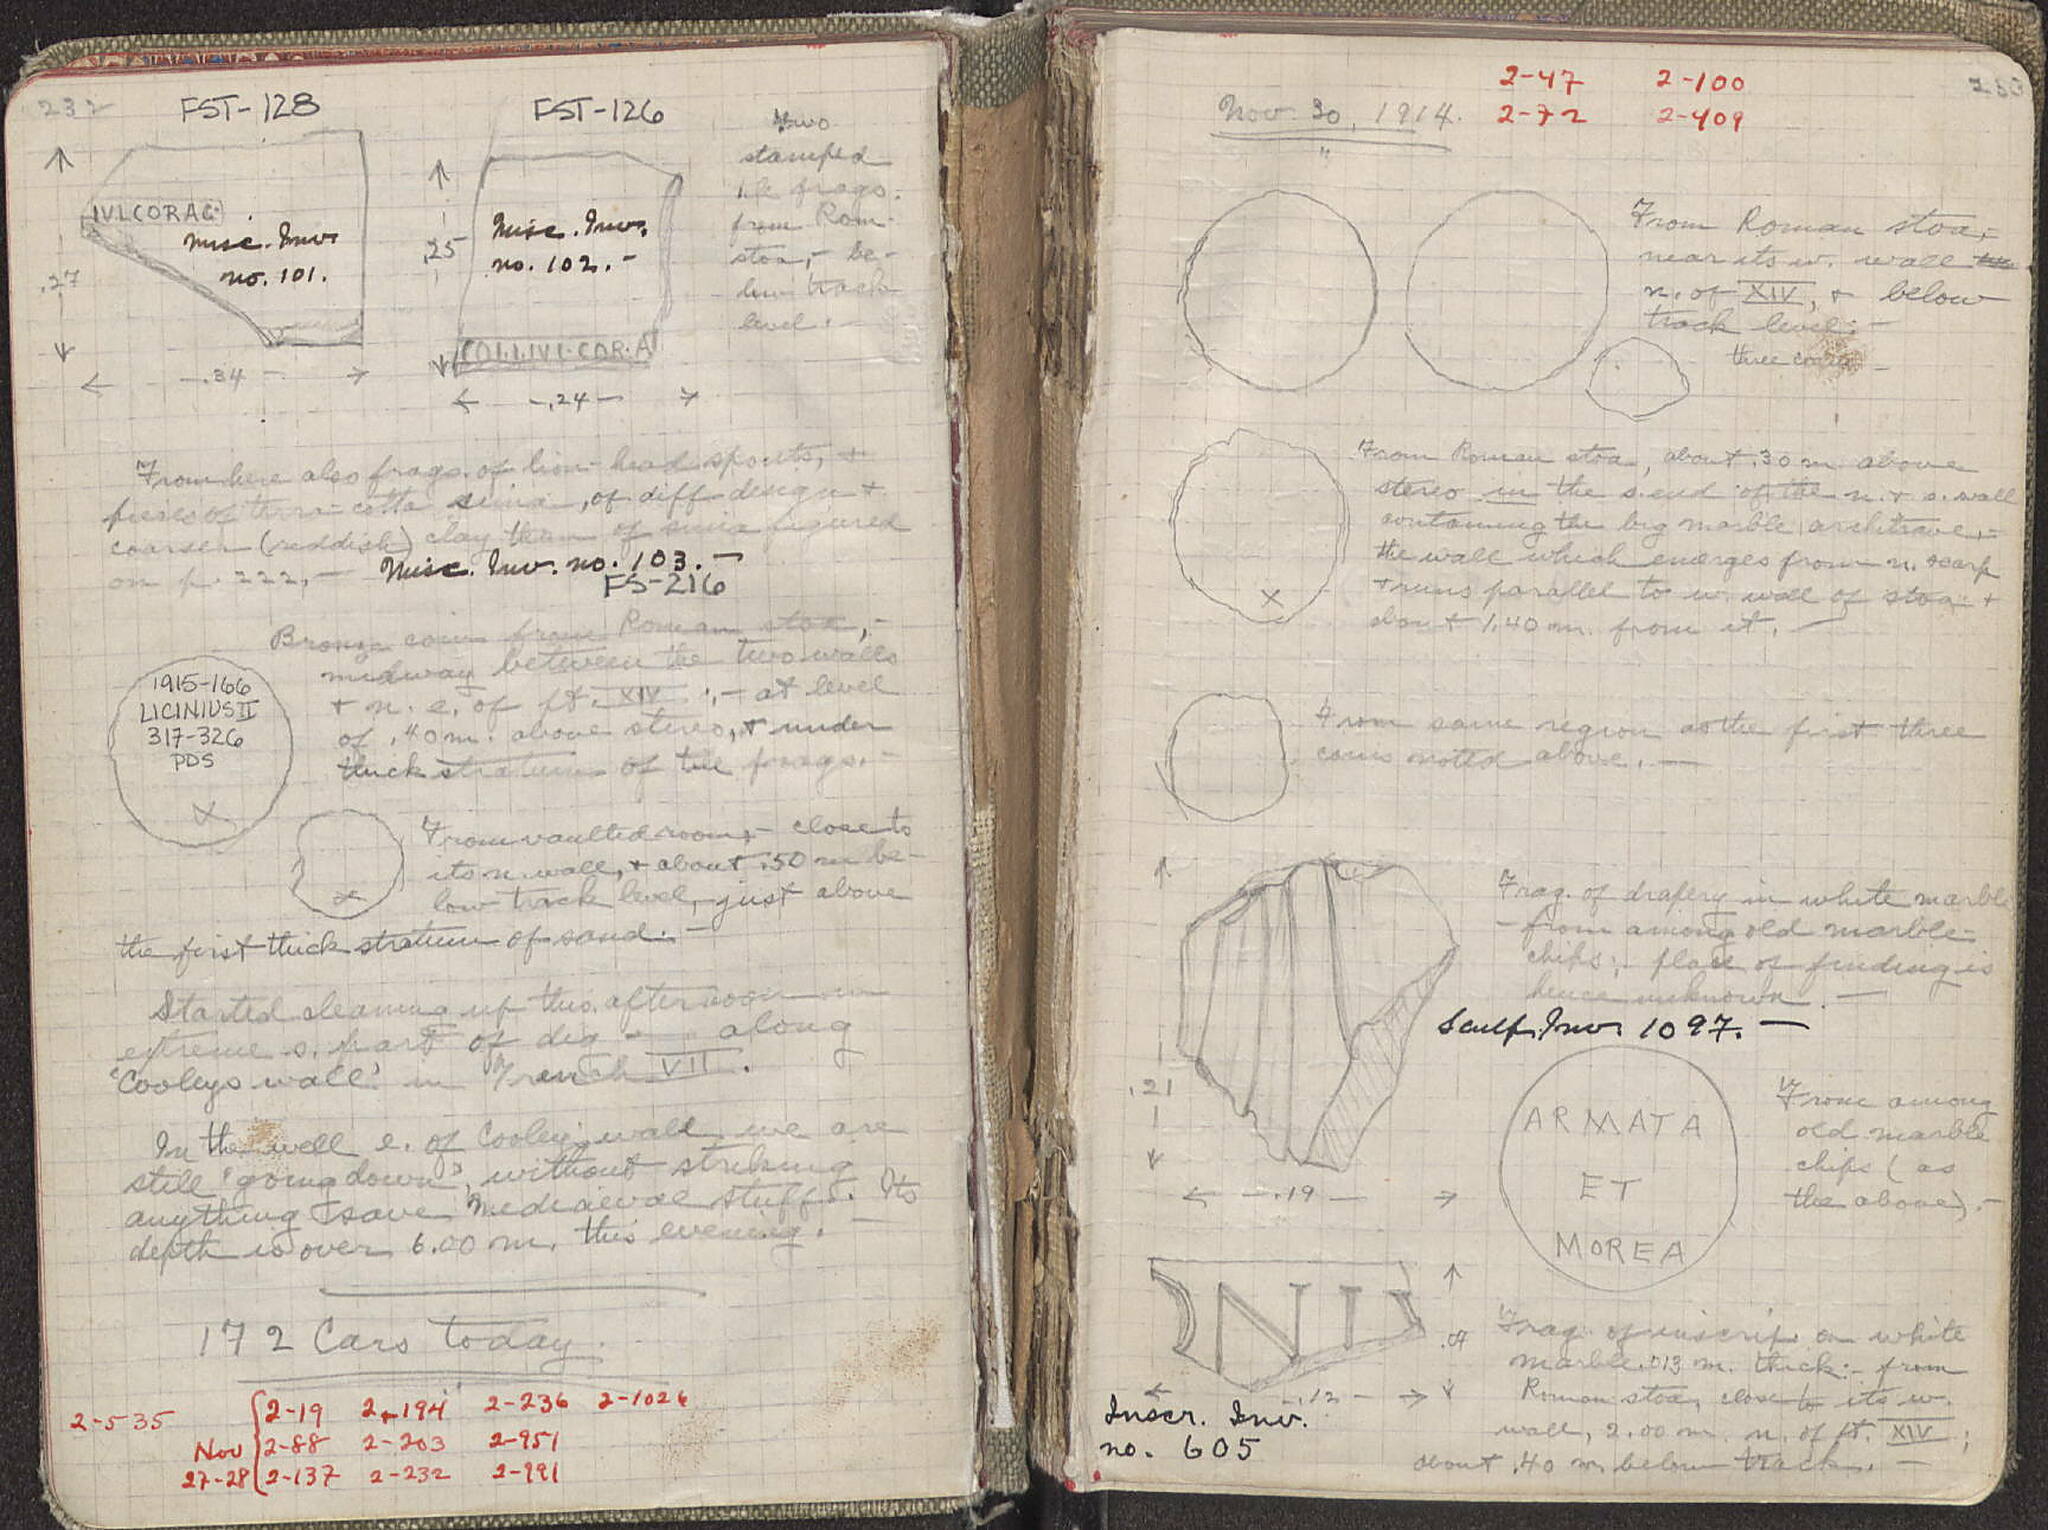 232
FST-128
FST-126
IVLCORAG.
Misc. Inv.
no. 101.
.27
.34
.25
Misc. Inv.
no. 102.-
COL.L.IVL.COR.A
.24
two
stamped
tile frags.
from Rom.
stoa,- be-
low track
level.-
From here also frags. of lion-head spouts, +
pieces of terra-cotta sima, of diff design +
coarser (reddish) clay than of sima figured
on p. 222,-
Misc. Inv. no. 103.-
FS-216
Bronze coin from Roman stoa,-
midway between the two walls
+ n. e. of ft. XIV :,- at level
of .40 m. above stereo, + under
thick stratum of tile frags.-
1915-166
LICINIUS II
317-326
PDS
X
From vaulted room,- close to
its n. wall, + about .50 m be-
low track level,- just above
the first thick stratum of sand.-
X
Started cleaning up this afternoon in
extreme s. part of dig - along
'Cooleys wall' in Trench VII.
In the well e. of Cooley wall we are
still 'going down', without striking
anything save mediaeval stuff. Its
depth is over 6.00 m. this evening.-
172 Cars today.
2-535
Nov
27-28
2-19 2-194 2-236 2-1026
2-88 2-203 2-951
2-137 2-232 2-991
Nov. 30, 1914.
2-47 2-100
2-72 2-409
233
From Roman stoa,-
near its w. wall
n. of XIV, + below
track level:-
three coins -
From Roman stoa, about .30 m. above
stereo in the s. end of the n. + s. wall
containing the big marble architrave,-
the wall which emerges from n. scarp
+ runs parallel to w. wall of stoa +
about 1.40 m. from it.-
X
From same region as the first three
coins noted above.-
Frag. of drapery in white marble
- from among old marble
chips:- place of finding is
hence unknown.-
Sculp. Inv. 1097.-
.21
.19
ARMATA
ET
MOREA
From among
old marble
chips (as
the above).-
NI
.12
Frag. of inscrip. on white
marble .013 m. thick:- from
Roman stoa, close to its w.
wall, 2.00 m. n. of ft. XIV;
about .40 m. below track.-
Inscr. Inv.
no. 605